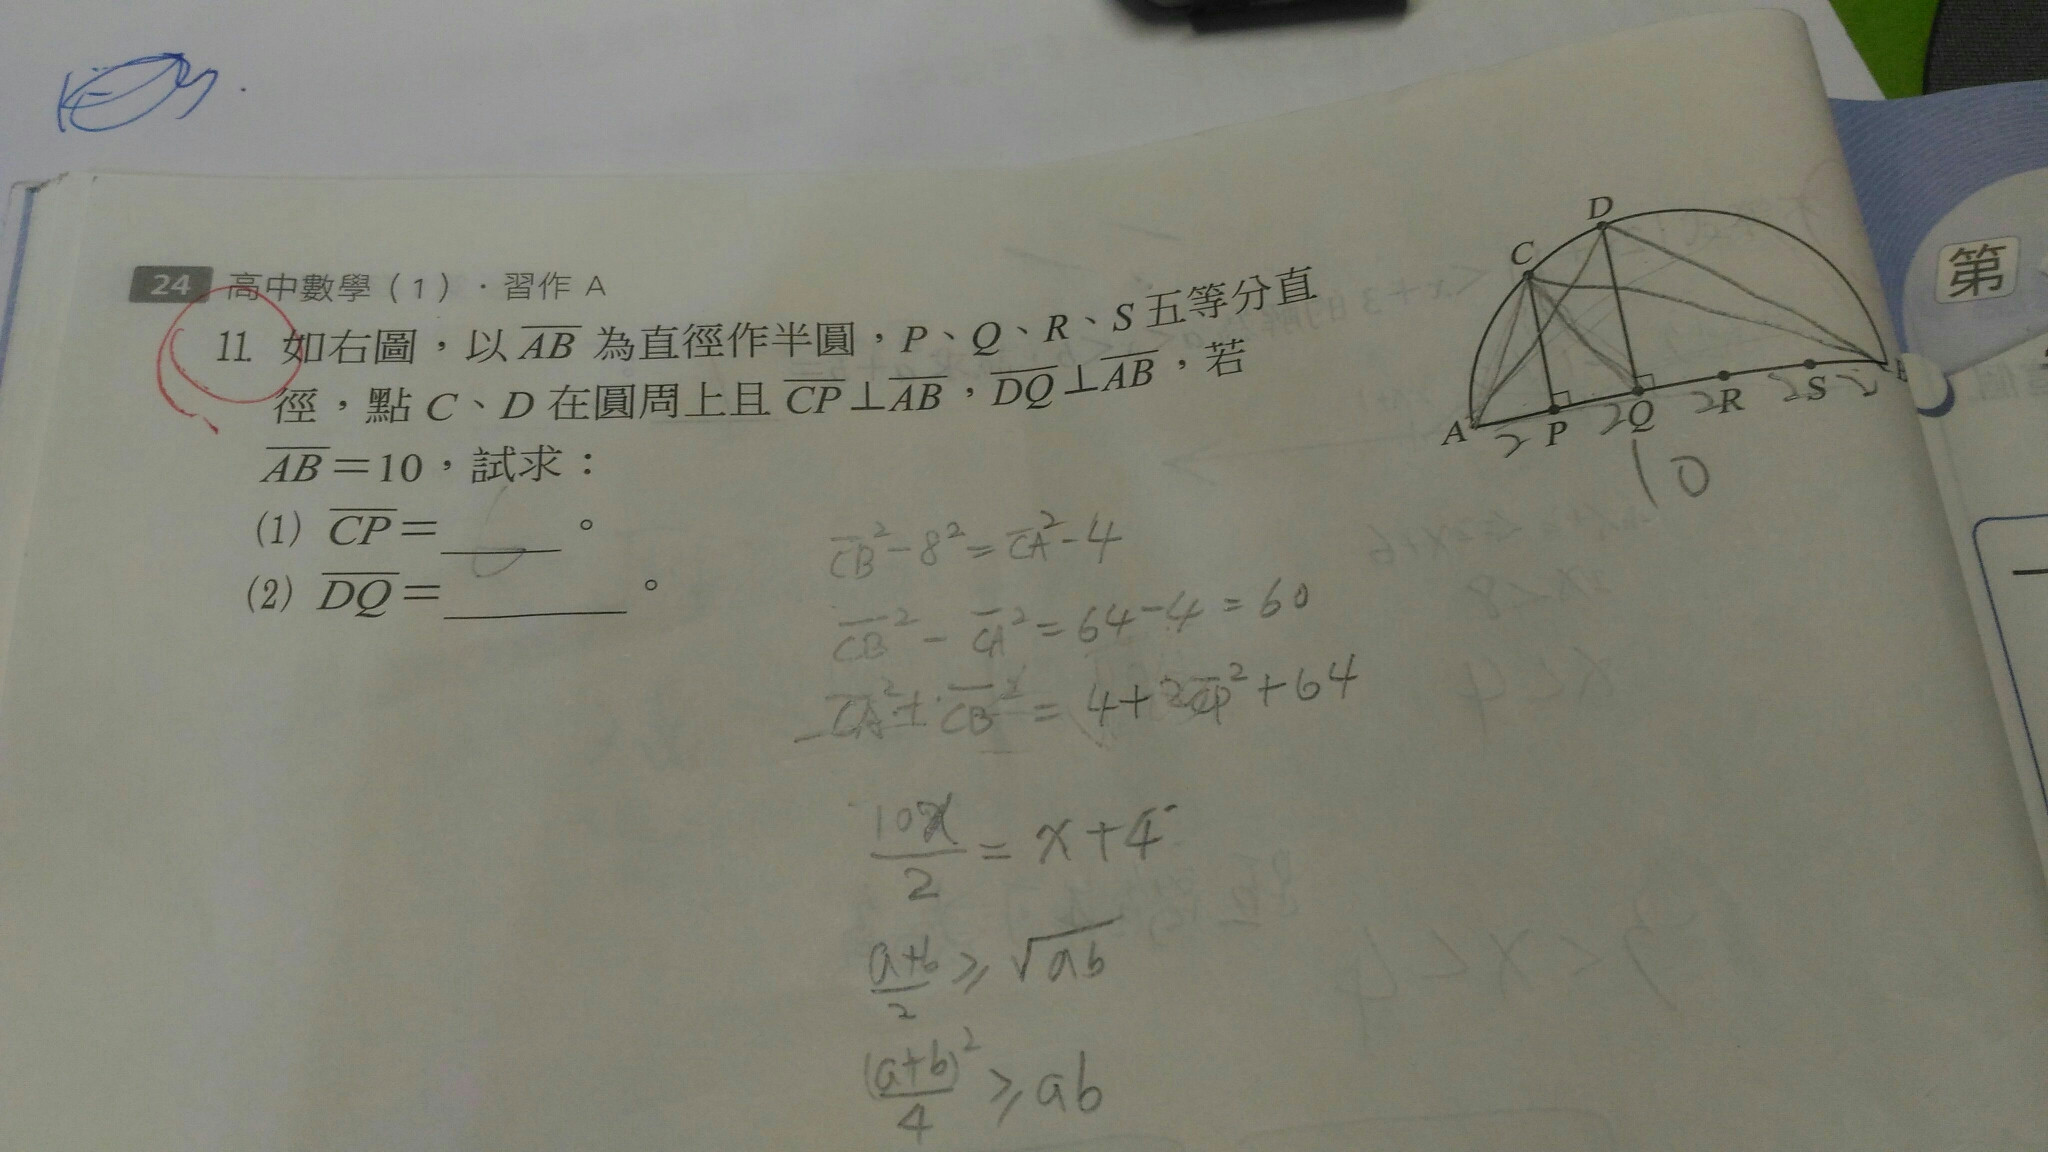 24 高中數學（1）．習作 A
11 如右圖，以 AB 為直徑作半圓，P、Q、R、S 五等分直
徑，點 C、D 在圓周上且 CP⊥AB，DQ⊥AB，若
AB＝10，試求：
(1) CP＝ 。
(2) DQ＝ 。
D
C
A 2 P 2 Q 2 R 2 S 2
10
CB²-8²=CA²-4
CB²-CA²=64-4=60
CA²+CB²=4+2CP²+64
10x/2=x+4
a+b/2≥√ab
(a+b)²/4≥ab
第